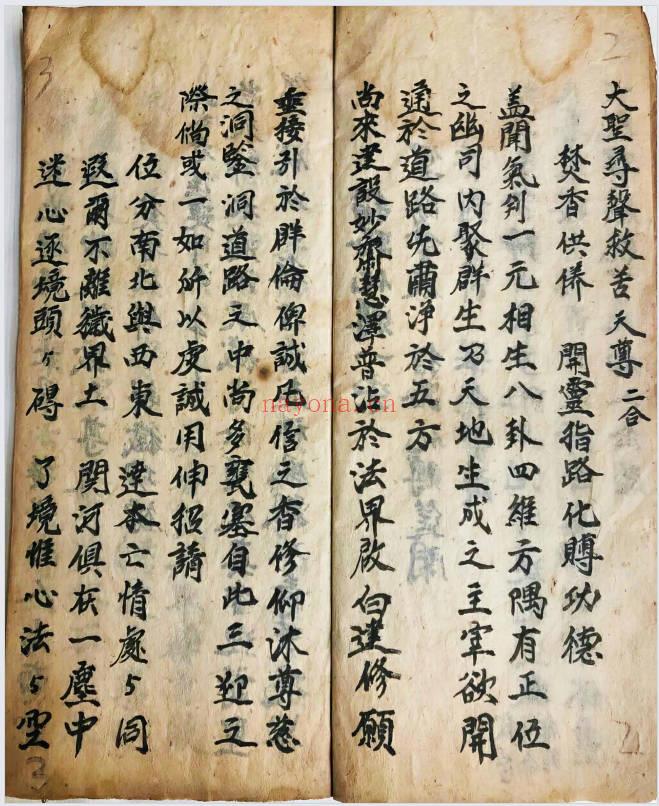 2
大聖尋聲救苦天尊 二合
焚香供养 開靈指路化賻功德
盖聞氣列一元相生八卦四維方隅有正位
之幽司内聚群生乃天地生成之主宰欲開
通於道路先蕑净於五方
尚來建設妙齋慧澤普沾於法界啟白建修願
2
3
垂接引於群倫俾誠凡信之香修仰沐尊慈
之洞鑒洞道路之中尚多甕塞自此三迎之
際倘或一如所以虔誠用伸招請
位分南北與西東 達本亡情處々同
遐爾不離纖界土 関河俱在一塵中
迷心逐境頭々碍 了境惟心法々空
3
nayona.cn